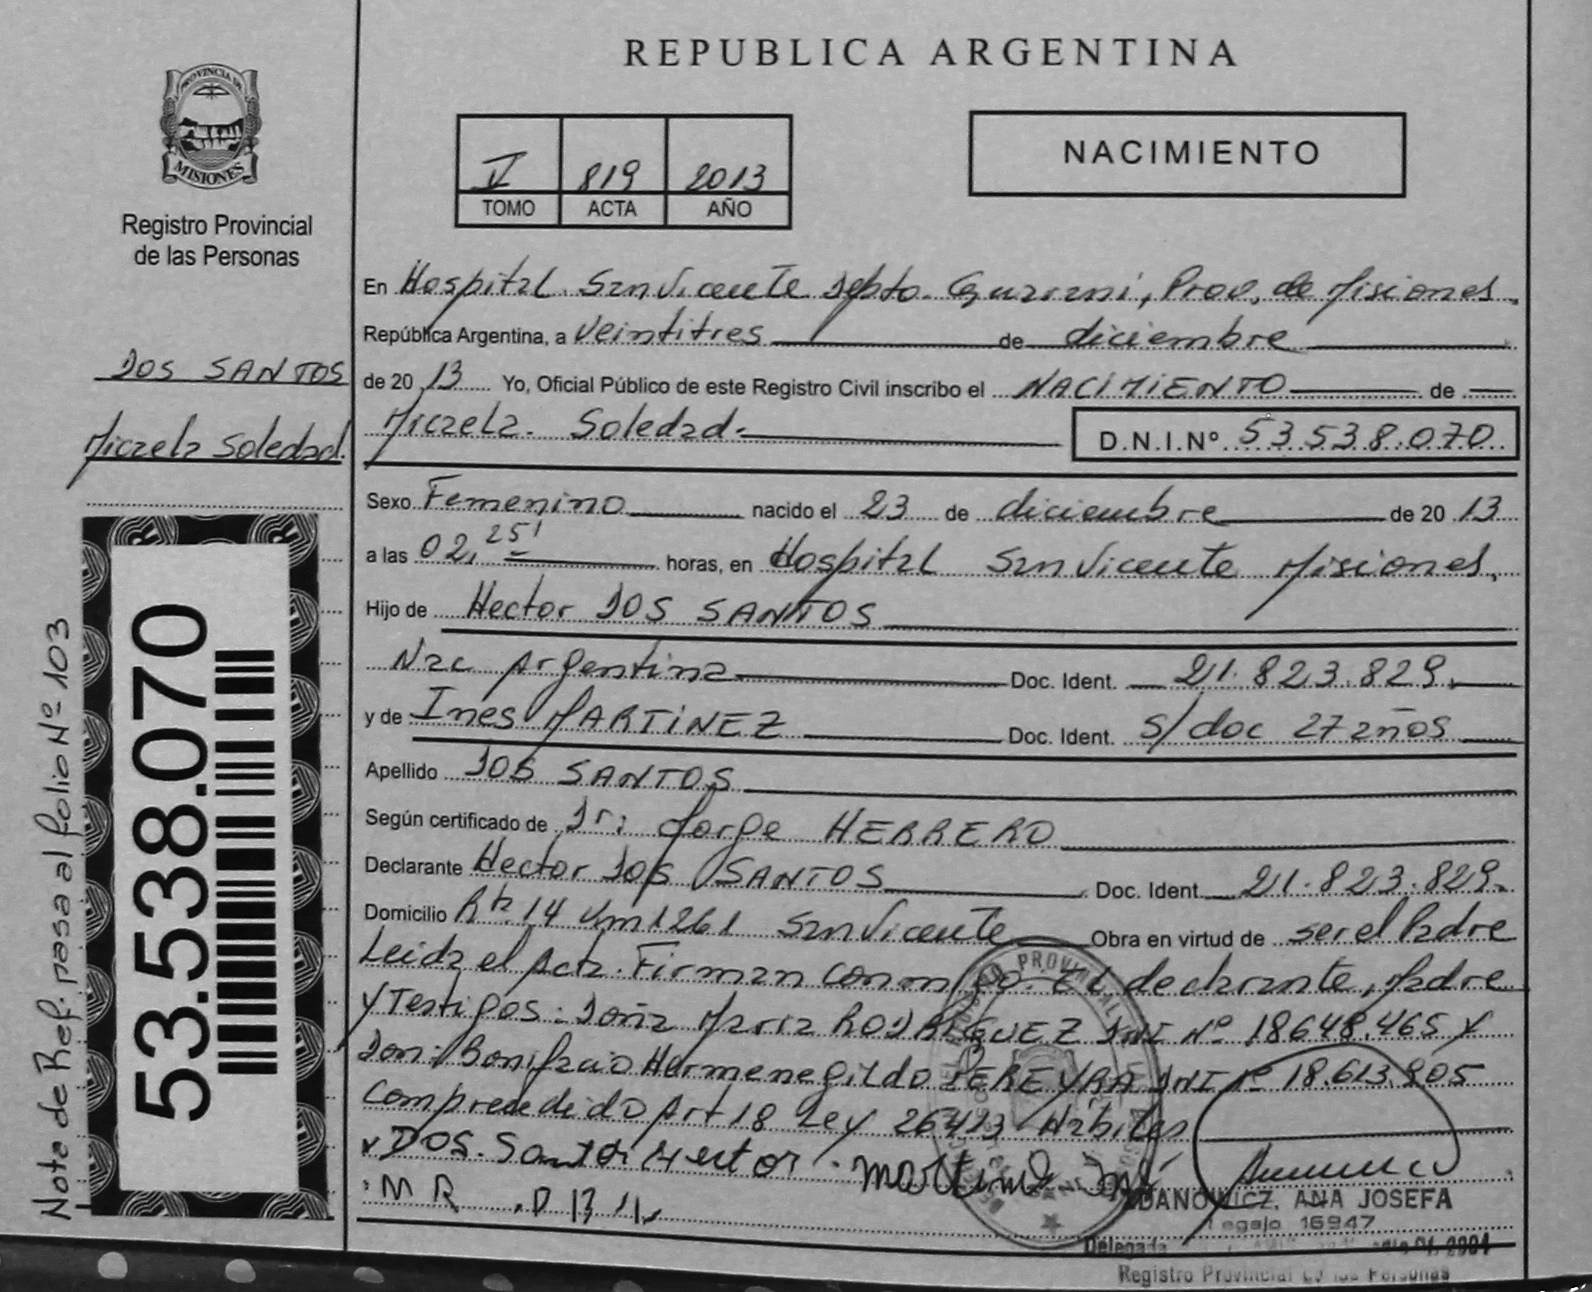 REPUBLICA ARGENTINA
PROVINCIA DE
MISIONES
Registro Provincial
de las Personas
V 819 2013
TOMO ACTA AÑO
NACIMIENTO
DOS SANTOS
Micaela Soledad.
Nota de Ref. pasa al folio Nº 103
53.538.070
En Hospital San Vicente Depto. Guarani, Prov. de Misiones.
República Argentina, a veintitres de diciembre
de 20 13 Yo, Oficial Público de este Registro Civil inscribo el NACIMIENTO de
Micaela Soledad. D.N.I.Nº 53.538.070
Sexo Femenino nacido el 23 de diciembre de 20 13
a las 02,25' horas, en Hospital San Vicente Misiones,
Hijo de Hector DOS SANTOS
Nac Argentina Doc. Ident. 21.823.829.
y de Ines MARTINEZ Doc. Ident. s/doc 27 años
Apellido DOS SANTOS
Según certificado de Dr: Jorge HERRERO
Declarante Hector DOS SANTOS Doc. Ident. 21.823.829.
Domicilio Rta. 14 Km 1261 San Vicente Obra en virtud de ser el Padre
Leida el Acta. Firman conmigo. El declarante, Madre
y Testigos: Doña Maria RODRIGUEZ DNI Nº 18648.465 y
Don: Bonifacio Hermenegildo PEREYRA DNI Nº 18.613.905
Art 18 Ley 26413
DOS. Santos Hector. Martinez
M R
ANA JOSEFA
Legajo 16947
Delegada
Registro Provincial de las Personas